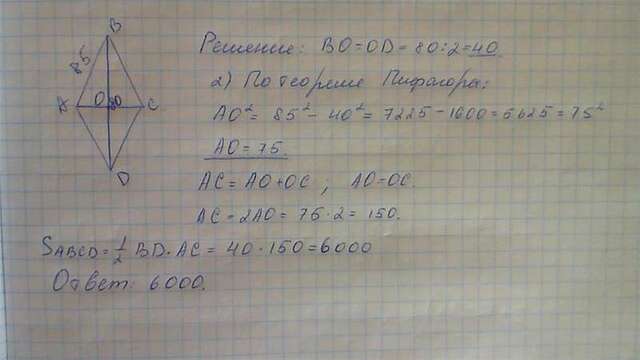 B
85
A O 80 C
D
Решение: BO=OD=80:2=40.
2) По теореме Пифагора:
AO²=85²-40²=7225-1600=5625=75²
AO=75.
AC=AO+OC; AO=OC.
AC=2AO=75·2=150.
SABCD=1/2 BD·AC=40·150=6000
Ответ: 6000.